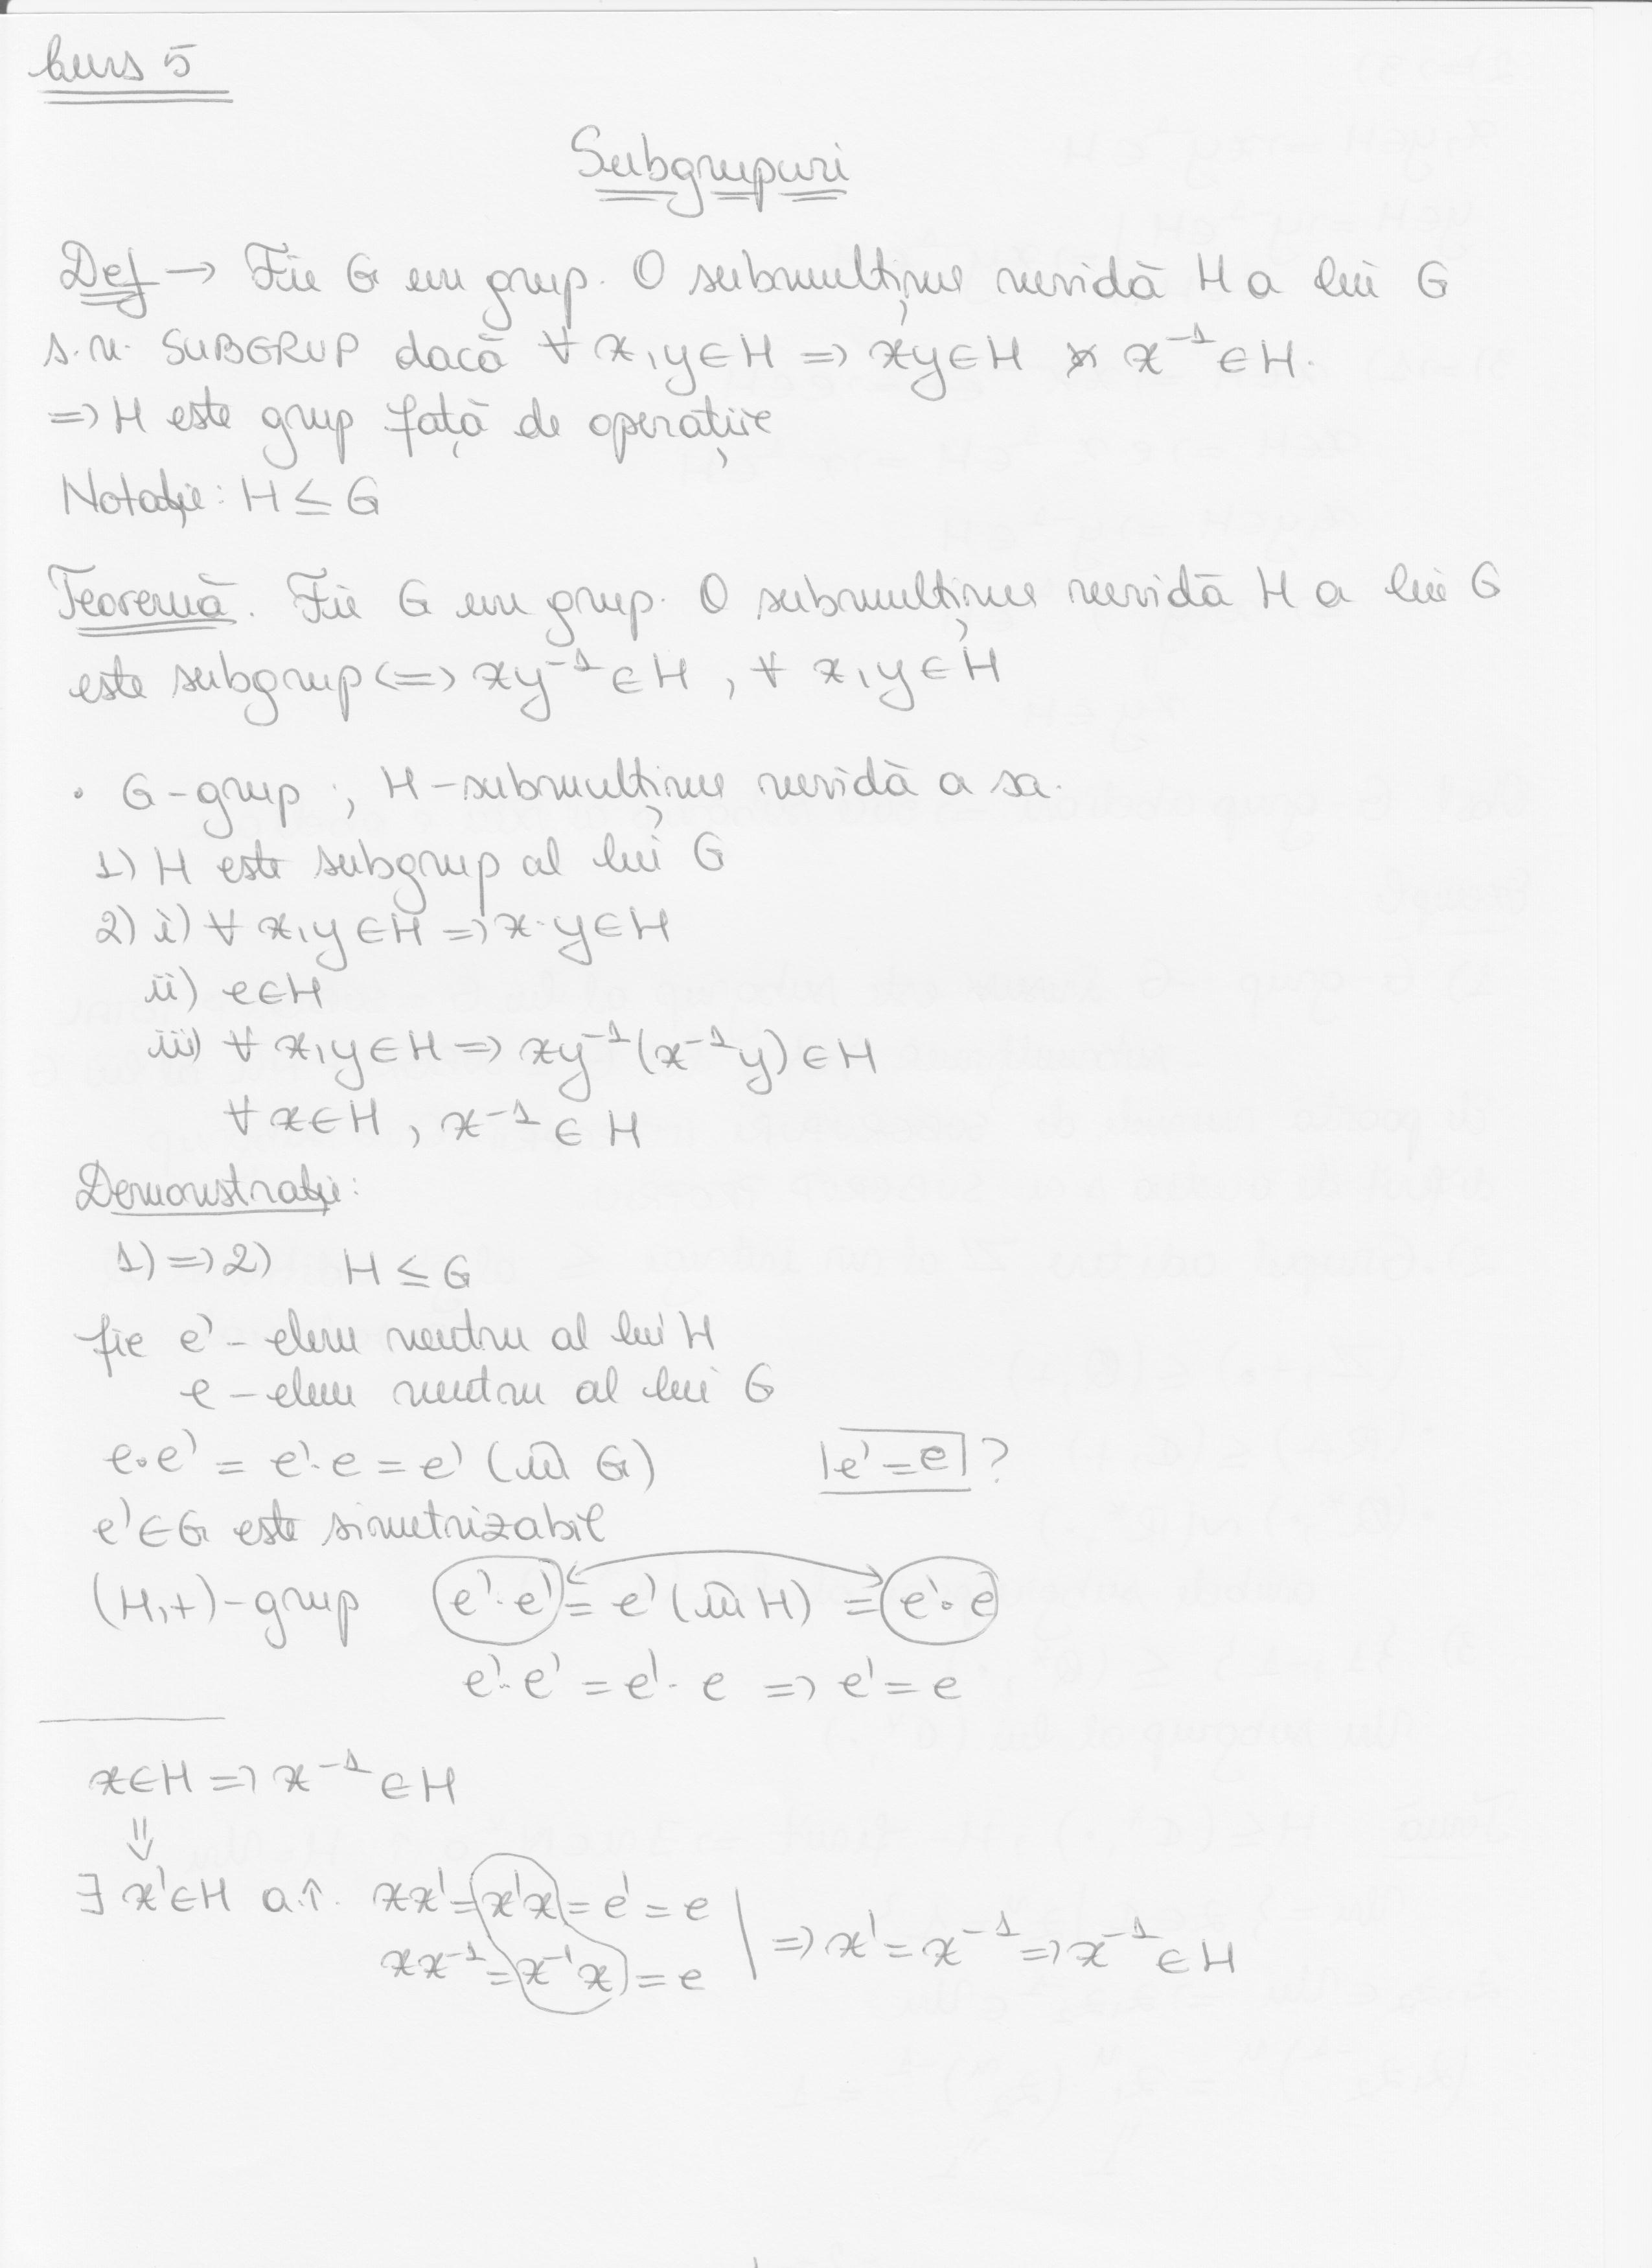 Curs 5
Subgrupuri
Def → Fie G un grup. O submulțime nevidă H a lui G
s.n. SUBGRUP dacă ∀ x,y∈H => xy∈H și x⁻¹∈H.
=> H este grup față de operație
Notație: H ≤ G
Teoremă. Fie G un grup. O submulțime nevidă H a lui G
este subgrup <=> xy⁻¹∈H , ∀ x,y∈H
• G-grup ; H-submulțime nevidă a sa.
1) H este subgrup al lui G
2) i) ∀ x,y∈H => x·y∈H
ii) e∈H
iii) ∀ x,y∈H => xy⁻¹(x⁻¹y)∈H
∀ x∈H , x⁻¹ ∈ H
Demonstrație:
1) => 2) H ≤ G
fie e' - elem neutru al lui H
e - elem neutru al lui G
e·e' = e'·e = e' (în G) |e' = e| ?
e'∈G este simetrizabil
(H,+)-grup e'·e' = e' (în H) = e'·e
e'·e' = e'·e => e' = e
x∈H => x⁻¹∈H
⇓
∃ x'∈H a.î. xx' = x'x = e' = e
xx⁻¹ = x⁻¹x = e | => x' = x⁻¹ => x⁻¹ ∈ H